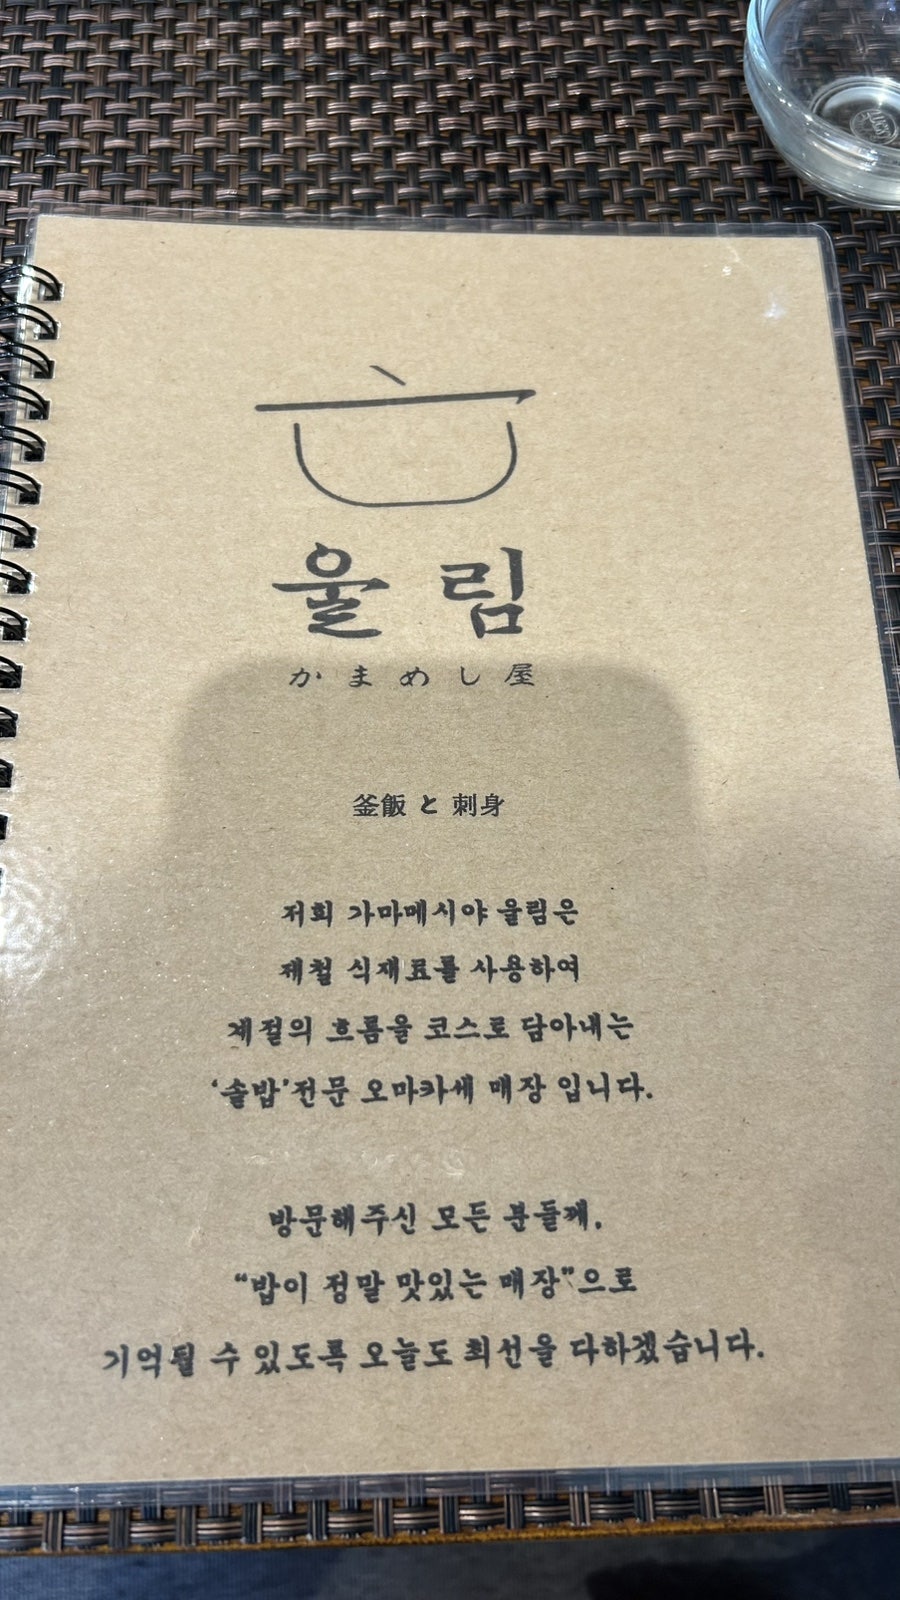 울림
かまめし屋
釜飯 と 刺身
저희 가마메시야 울림은
제철 식재료를 사용하여
계절의 흐름을 코스로 담아내는
‘솥밥’전문 오마카세 매장 입니다.
방문해주신 모든 분들께,
“밥이 정말 맛있는 매장”으로
기억될 수 있도록 오늘도 최선을 다하겠습니다.